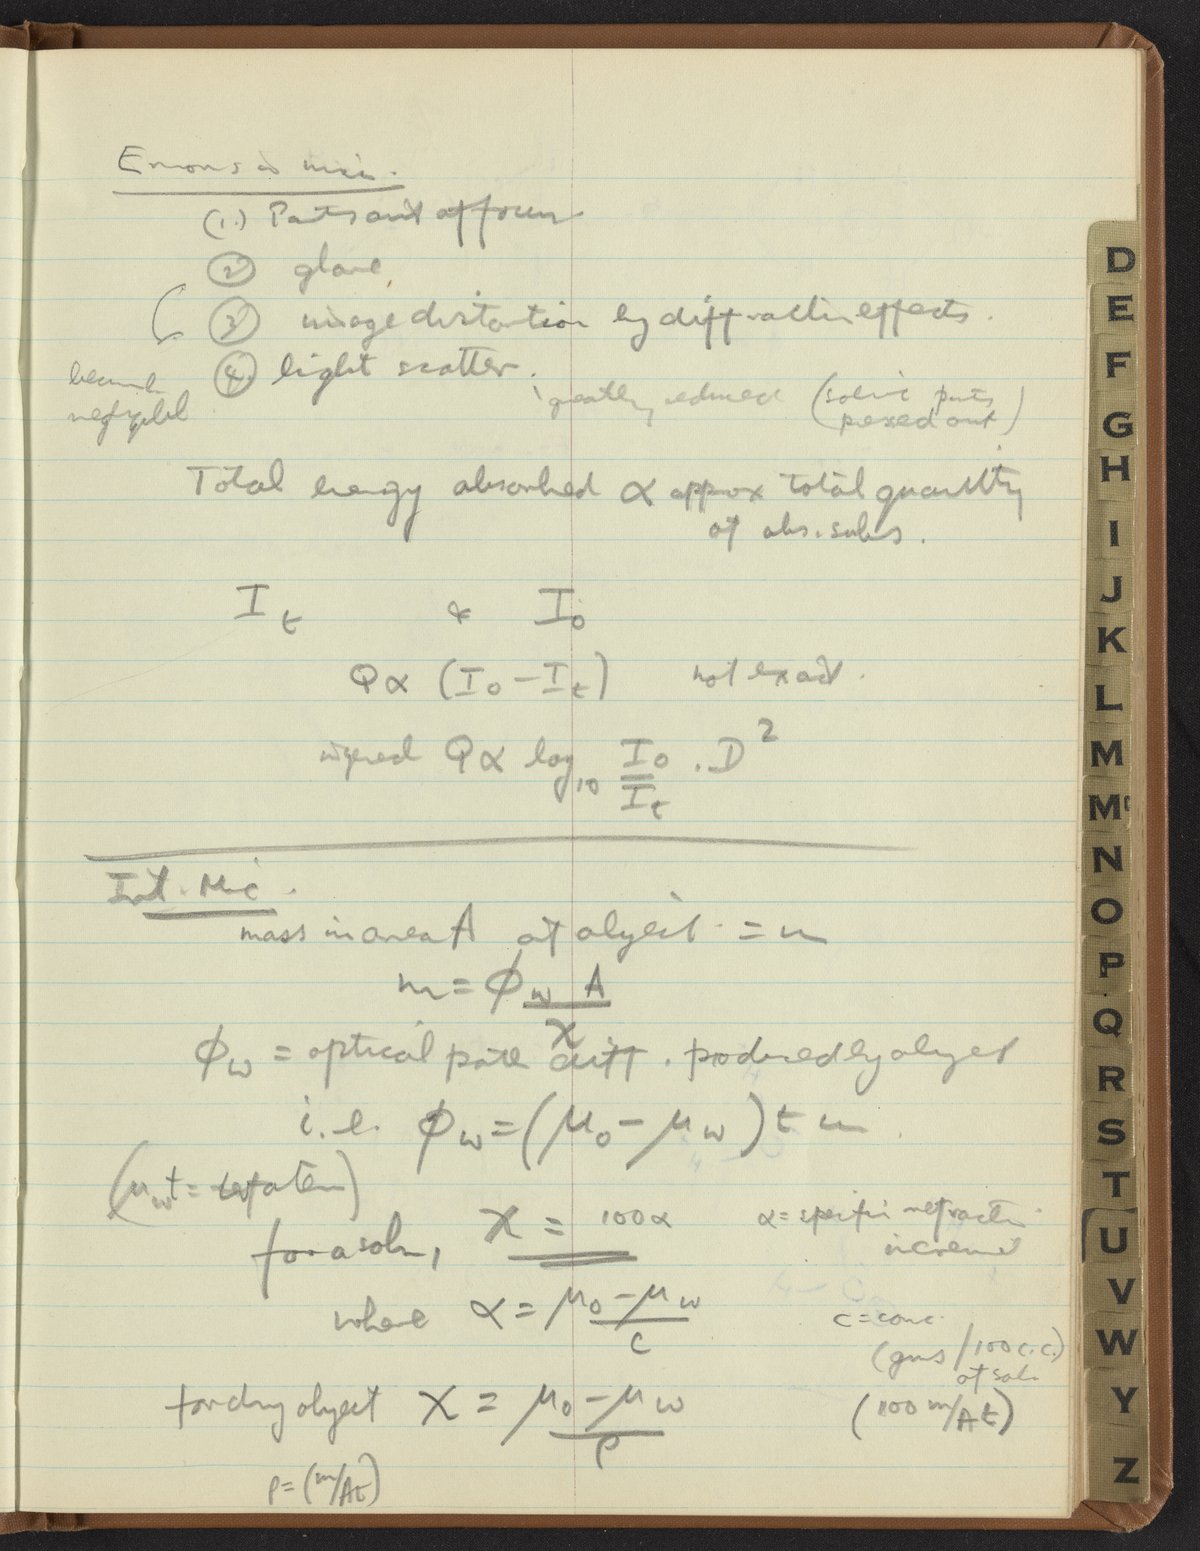 Errors in mic.
(1.) Parts out of focus
② glare
③ image distortion by diffraction effects.
④ light scatter.
become
negligible
greatly reduced (solid parts
pressed out)
Total energy absorbed ∝ approx total quantity
of abs. subs.
I_t & I_o
Q ∝ (I_o - I_t) not exact.
Q ∝ log_10 I_o/I_t . D^2
Int. Mic.
mass in area A of object = m
m = ϕ_w A / χ
ϕ_w = optical path diff. produced by object
i.e. ϕ_w = (μ_o - μ_w) t
(μ_w t = water)
for a soln, χ = 100α
α = specific refraction
increment
where α = μ_o - μ_w / c
c = conc.
(gms/100 c.c.)
of soln
for dry object χ = μ_o - μ_w / ρ
(100 m/At)
ρ = (m/At)
D
E
F
G
H
I
J
K
L
M
Mc
N
O
P
Q
R
S
T
U
V
W
Y
Z